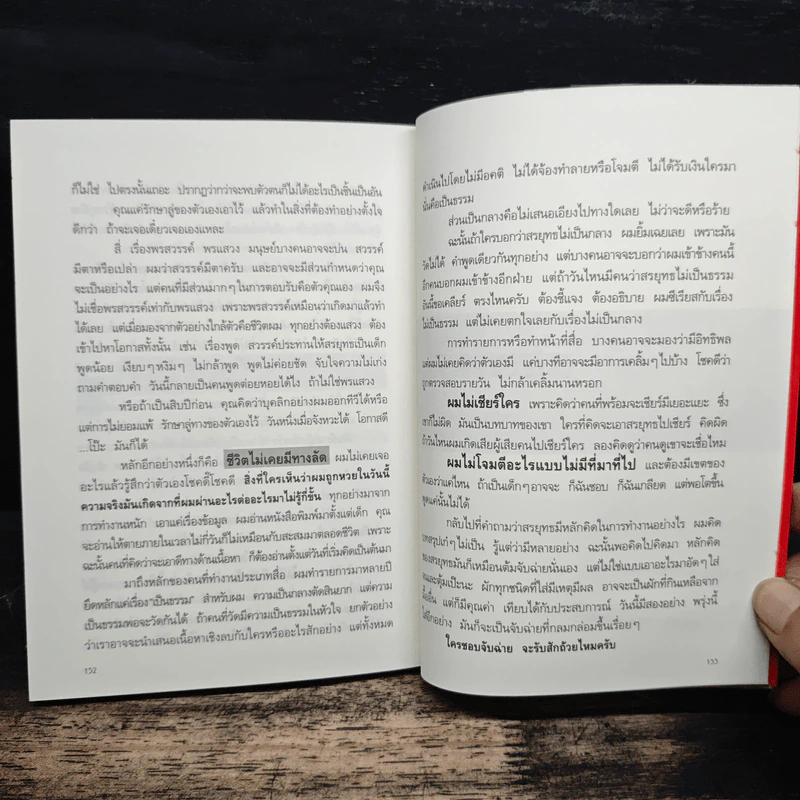 ก็ไม่ใช่ ไปตรงนั้นเถอะ ปรากฏว่ากว่าจะพบตัวตนก็ไม่ได้อะไรเป็นชิ้นเป็นอัน
คุณแค่รักษาลู่ของตัวเองเอาไว้ แล้วทำในสิ่งที่ต้องทำอย่างตั้งใจ
ดีกว่า ถ้าจะเจอเดี๋ยวเจอเองแหละ
สี่ เรื่องพรสวรรค์ พรแสวง มนุษย์บางคนอาจจะบ่น สวรรค์
มีตาหรือเปล่า ผมว่าสวรรค์มีตาครับ และอาจจะมีส่วนกำหนดว่าคุณ
จะเป็นอย่างไร แต่คนที่มีส่วนมากๆ ในการตอบรับคือตัวคุณเอง ผมจึง
ไม่เชื่อพรสวรรค์เท่ากับพรแสวง เพราะพรสวรรค์เหมือนว่าเกิดมาแล้วทำ
ได้เลย แต่เมื่อมองจากตัวอย่างใกล้ตัวคือชีวิตผม ทุกอย่างต้องแสวง ต้อง
เข้าไปหาโอกาสทั้งนั้น เช่น เรื่องพูด สวรรค์ประทานให้สรยุทธเป็นเด็ก
พูดน้อย เงียบๆ หงิมๆ ไม่กล้าพูด พูดไม่ค่อยชัด จับใจความไม่เก่ง
ถามคำตอบคำ วันนี้กลายเป็นคนพูดต่อยหอยได้ไง ถ้าไม่ใช่พรแสวง
หรือถ้าเป็นสิบปีก่อน คุณคิดว่าบุคลิกอย่างผมออกทีวีได้หรือ
แต่การไม่ยอมแพ้ รักษาลู่ทางของตัวเองไว้ วันหนึ่งเมื่อจังหวะได้ โอกาสดี
...โป๊ะ มันก็ได้
หลักอีกอย่างหนึ่งก็คือ ชีวิตไม่เคยมีทางลัด ผมไม่เคยเจอ
อะไรแล้วรู้สึกว่าตัวเองโชคดีโชคดี สิ่งที่ใครเห็นว่าผมถูกหวยในวันนี้
ความจริงมันเกิดจากที่ผมผ่านอะไรต่ออะไรมาไม่รู้กี่ขั้น ทุกอย่างมาจาก
การทำงานหนัก เอาแค่เรื่องข้อมูล ผมอ่านหนังสือพิมพ์มาตั้งแต่เด็ก คุณ
จะอ่านให้ตายภายในเวลาไม่กี่วันก็ไม่เหมือนกับสะสมมาตลอดชีวิต เพราะ
ฉะนั้นคนที่คิดว่าจะเอาดีทางด้านเนื้อหา ก็ต้องอ่านตั้งแต่วันที่เริ่มคิดเป็นต้นมา
มาถึงหลักของคนที่ทำงานประเภทสื่อ ผมทำรายการมาหลายปี
ยึดหลักแค่เรื่อง"เป็นธรรม" สำหรับผม ความเป็นกลางตัดสินยาก แต่ความ
เป็นธรรมพอจะวัดกันได้ ถ้าคนที่วัดมีความเป็นธรรมในหัวใจ ยกตัวอย่าง
ว่าเราอาจจะนำเสนอเนื้อหาเชิงลบกับใครหรืออะไรสักอย่าง แต่ทั้งหมด
152
ดำเนินไปโดยไม่มีอคติ ไม่ได้จ้องทำลายหรือโจมตี ไม่ได้รับเงินใครมา
นั่นคือเป็นธรรม
ส่วนเป็นกลางคือไม่เสนอเอียงไปทางใดเลย ไม่ว่าจะดีหรือร้าย
ฉะนั้นถ้าใครบอกว่าสรยุทธไม่เป็นกลาง ผมยิ้มเฉยเลย เพราะมัน
วัดไม่ได้ คำพูดเดียวกันทุกอย่าง แต่บางคนอาจจะบอกว่าผมเข้าข้างคนนี้
อีกคนบอกผมเข้าข้างอีกฝ่าย แต่ถ้าวันไหนมีคนว่าสรยุทธไม่เป็นธรรม
อันนี้ขอเคลียร์ ตรงไหนครับ ต้องชี้แจง ต้องอธิบาย ผมซีเรียสกับเรื่อง
ไม่เป็นธรรม แต่ไม่เคยตกใจเลยกับเรื่องไม่เป็นกลาง
การทำรายการหรือทำหน้าที่สื่อ บางคนอาจจะมองว่ามีอิทธิพล
แต่ผมไม่เคยคิดว่าตัวเองมี แค่บางทีอาจจะมีอาการเคลิ้มๆ ไปบ้าง โชคดีว่า
ถูกตรวจสอบรายวัน ไม่กล้าเคลิ้มนานหรอก
ผมไม่เชียร์ใคร เพราะคิดว่าคนที่พร้อมจะเชียร์มีเยอะแยะ ซึ่ง
เขาก็ไม่ผิด มันเป็นบทบาทของเขา ใครที่คิดจะเอาสรยุทธไปเชียร์ คิดผิด
ถ้าวันไหนผมเกิดเสียผู้เสียคนไปเชียร์ใคร ลองคิดดูว่าคนดูเขาจะเชื่อไหม
ผมไม่โจมตีอะไรแบบไม่มีที่มาที่ไป และต้องมีเขตของ
ตัวเองว่าแค่ไหน ถ้าเป็นเด็กๆ อาจจะ ก็ฉันชอบ ก็ฉันเกลียด แต่พอโตขึ้น
พูดแค่นั้นไม่ได้
กลับไปที่คำถามว่าสรยุทธมีหลักคิดในการทำงานอย่างไร ผมคิด
บทสรุปเก๋ๆ ไม่เป็น รู้แต่ว่ามีหลายอย่าง ฉะนั้นพอคิดไปคิดมา หลักคิด
ของสรยุทธมันก็เหมือนต้มจับฉ่ายนั่นเอง แต่ไม่ใช่แบบเอาอะไรมาอัดๆ ใส่
และตุ้มเป๊ะนะ ผักทุกชนิดที่ใส่มีเหตุมีผล อาจจะเป็นผักที่กินเหลือจาก
มื้ออื่น แต่ก็มีคุณค่า เทียบได้กับประสบการณ์ วันนี้มีสองอย่าง พรุ่งนี้
ใส่อีกอย่าง มันก็จะเป็นจับฉ่ายที่กลมกล่อมขึ้นเรื่อยๆ
ใครชอบจับฉ่าย จะรับสักถ้วยไหมครับ
153